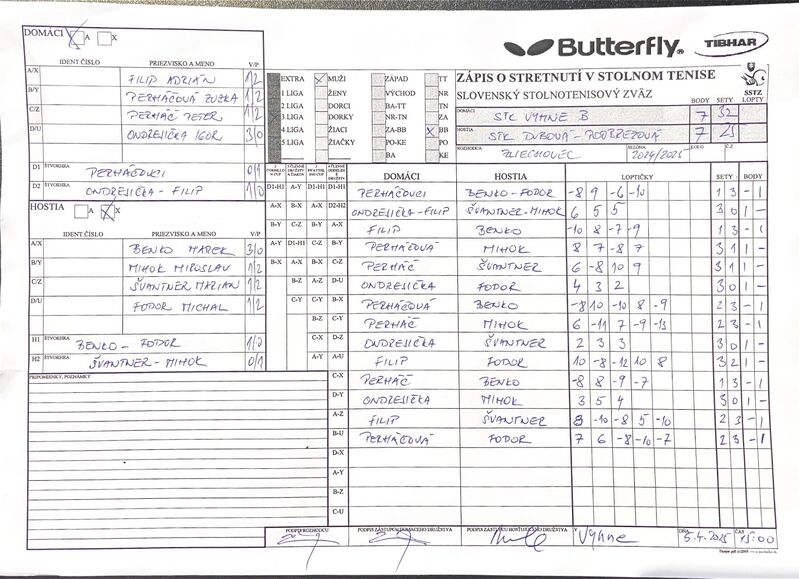 DOMÁCI A X
Butterfly TIBHAR
IDENT.ČÍSLO PRIEZVISKO A MENO V/P
A/X FILIP ADRIÁN 1/2
B/Y PERHÁČOVÁ ZUZKA 1/2
C/Z PERHÁČ PETER 1/2
D/U ONDREJIČKA IGOR 3/0
D1 ŠTVORHRA PERHÁČOVCI 0/1
D2 ŠTVORHRA ONDREJIČKA - FILIP 1/0
EXTRA MUŽI ZÁPAD TT
1 LIGA ŽENY VÝCHOD NR
2 LIGA DORCI BA-TT TN
3 LIGA DORKY NR-TN ZA
4 LIGA ŽIACI ZA-BB BB
5 LIGA ŽIAČKY PO-KE PO
BA KE
ZÁPIS O STRETNUTÍ V STOLNOM TENISE
SLOVENSKÝ STOLNOTENISOVÝ ZVÄZ
SSTZ
BODY SETY LOPTY
DOMÁCI STK VYHNE B 7 32
HOSTIA STK DUBOVÁ - PODBREZOVÁ 7 25
ROZHODCA ZLIECHOVEC SEZÓNA 2024/2025 KOLO Č.
HOSTIA A X
IDENT.ČÍSLO PRIEZVISKO A MENO V/P
A/X BENKO MAREK 3/0
B/Y MIHOK MIROSLAV 1/2
C/Z ŠVANTNER MARIAN 1/2
D/U FODOR MICHAL 1/2
H1 ŠTVORHRA BENKO - FODOR 1/0
H2 ŠTVORHRA ŠVANTNER - MIHOK 0/1
PRIPOMIENKY, POZNÁMKY
DOMÁCI HOSTIA LOPTIČKY SETY BODY
D1-H1 A-Y D1-H1 D1-H1 PERHÁČOVCI BENKO - FODOR -8 9 -6 -10 1 3 - 1
A-X B-X A-X D2-H2 ONDREJIČKA - FILIP ŠVANTNER - MIHOK 6 5 5 3 0 1 -
B-Y C-Z B-Y A-X FILIP BENKO -10 8 -7 -9 1 3 - 1
A-Y D1-H1 C-Z B-Y PERHÁČOVÁ MIHOK 8 7 -8 7 3 1 1 -
B-X A-X B-X C-Z PERHÁČ ŠVANTNER 6 -8 10 9 3 1 1 -
B-Z A-Z D-U ONDREJIČKA FODOR 4 3 2 3 0 1 -
C-Y C-Y B-X PERHÁČOVÁ BENKO -8 10 -10 8 -9 2 3 - 1
B-Z C-Y PERHÁČ MIHOK 6 -11 7 -9 -13 2 3 - 1
C-X D-Z ONDREJIČKA ŠVANTNER 2 3 3 3 0 1 -
A-Y A-U FILIP FODOR 10 -8 -12 10 8 3 2 1 -
C-X PERHÁČ BENKO -8 8 -9 -7 1 3 - 1
D-Y ONDREJIČKA MIHOK 3 5 4 3 0 1 -
A-Z FILIP ŠVANTNER 8 -10 -8 5 -10 2 3 - 1
B-U PERHÁČOVÁ FODOR 7 6 -8 -10 -7 2 3 - 1
D-X
A-Y
B-Z
C-U
PODPIS ROZHODCU PODPIS ZÁSTUPCU DOMÁCEHO DRUŽSTVA PODPIS ZÁSTUPCU HOSŤUJÚCEHO DRUŽSTVA V Vyhne DŇA 5.4.2025 ČAS 15:00